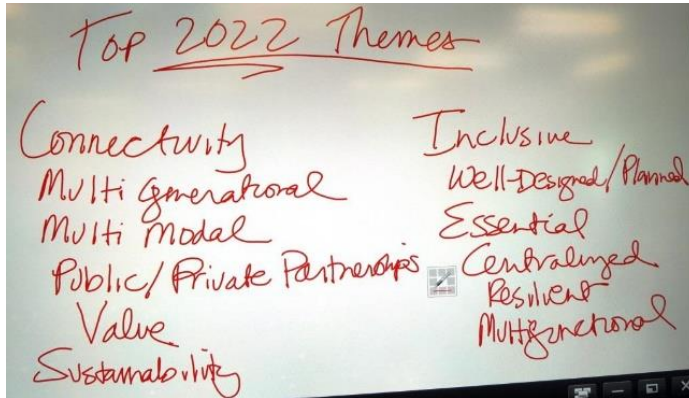 Top 2022 Themes
Connectivity
Multi generational
Multi Modal
Public/Private Partnerships
Value
Sustainability
Inclusive
Well-Designed/Planned
Essential
Centralized
Resilient
Multifunctional